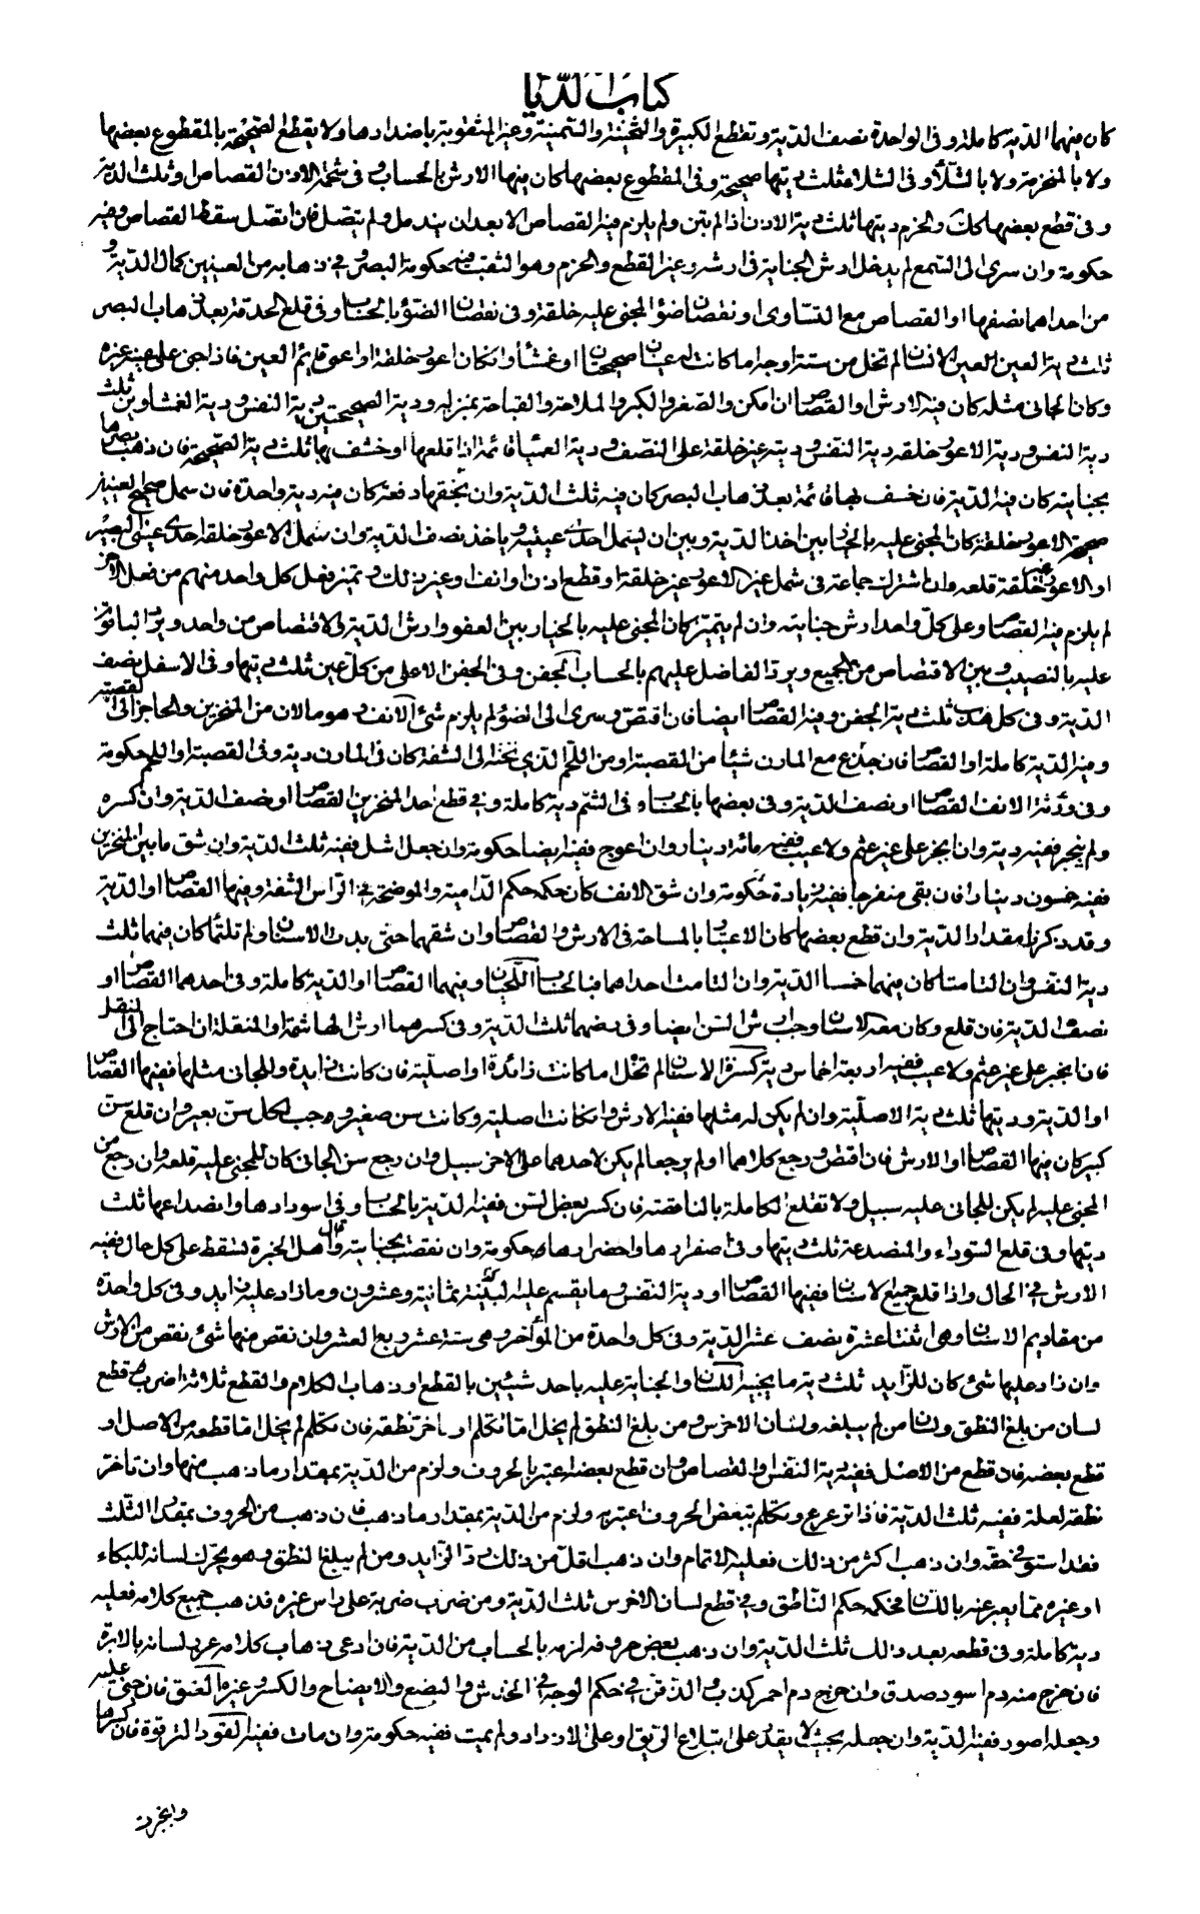 كتاب الديا
كان فيهما الدية كاملة وفى الواحدة نصف الدية وتقطع الكبيرة والثخينة والسمينة وغير المثقوبة باضدادها ولا يقطع الصحيحة بالمقطوع بعضها
ولا بالمنخرمة ولا بالشلاء وفى الشلاء ثلث ديتها صحيحة وفى المقطوع بعضها كان فيها الارش بالحساب وفى شحمة الاذن القصاص او ثلث الدية
وفى قطع بعضها كك والخرم ديتها ثلث دية الاذن اذا لم تبن ولم يلزم فيه القصاص الا بعد ان يندمل ولم يتصل فان اتصل سقط القصاص وفيه
حكومة وان سرى الى السمع لم يدخل ارش الجناية فى ارشه وغير القطع والخرم وهو الثقب فيه حكومة البصر وفى ذهابه من العينين كمال الدية و
من احداهما نصفها او القصاص مع التساوى او نقصان ضوء المجنى عليه خلقة وفى نقصان الضوء بالحساب وفى قلع الحدقة بعد ذهاب البصر
ثلث دية العين العين الانسان لم تخل من ستة اوجه اما كانت له عينان صحيحتان او غشأ او كان اعور خلقة او اعمى قايم العين فاذا جنى على عينه غيره
وكان للجانى مثله كان فيه الارش او القصاص ان امكن والصغر والكبر والملاحة والقباحة بمنزلة ودية الصحيحتين دية النفس ودية الغشاوين ثلث
دية النفس ودية الاعور خلقه دية النفس وديته غير خلقة على النصف ودية العمياء قائمة اذا قلعها او خسف بها ثلث دية الصحيحة فان ذهب بصرها
بجناية كان فيه الدية فان خسف بها قائمة بعد ذهاب البصر كان فيه ثلث الدية وان بخقها دفعة كان فيه دية واحدة فان سمل صحيح العينين
صحيحة الاعور خلقة كان المجنى عليه بالخيار بين اخذ الدية وبين ان يسمل احدى عينيه وياخذ نصف الدية وان سمل الاعور خلقة احدى عينى البصير
او الاعور غير خلقة قلعه وان اشترك جماعة فى سمل عين الاعور غير خلقة او قطع اذن او انف او غير ذلك وتميز فعل كل واحد منهم من فعل الاخر
لم يلزم فيه القصاص وعلى كل واحد ارش جنايته وان لم يتميز كان المجنى عليه بالخيار بين العفو وارش الدية فى الاقتصاص من واحد ويرد الباقون
عليه بالنصيب وبين الاقتصاص من الجميع ويرد الفاضل عليهم بالحساب الجفن وفى الجفن الاعلى من كل عين ثلث ديتها وفى الاسفل نصف
الدية وفى كل هدب ثلث دية الجفن وفيه القصاص ايضا فان اقتص وسرى الى الضوء لم يلزم شئ الانف وهو مالان من المنخرين والحاجز الى القصبة
وفيه الدية كاملة او القصاص فان جذع مع المارن شيئا من القصبة او من اللحم الذي تحته الى الشفة كان فى المارن دية وفى القصبة او اللحم حكومة
وفى روثة الانف القصاص او نصف الدية وفى بعضها بالحساب وفى الشم دية كاملة وفى قطع احد المنخرين القصاص او نصف الدية وان كسره
ولم ينجبر ففيه دية وان انجبر على غير عثم ولا عيب ففيه مائة دينار وان اعوج ففيه ايضا حكومة وان جعل اشل ففيه ثلث الدية وان شق ما بين المنخرين
ففيه خمسون دينارا فان بقى منفرجا ففيه زيادة حكومة وان شق الانف كان حكمه حكم الدامية والموضحة فى الراس الشفة وفيها القصاص او الدية
وقد ذكرنا مقدار الدية وان قطع بعضها كان الاعتبار بالمساحة فى الارش والقصاص وان شقهما حتى بدت الاسنان ولم تلتئما كان فيهما ثلث
دية النفس وان التامتا كان فيهما خمسا الدية وان التامت احداهما فبالحساب اللحيان وفيهما القصاص او الدية كاملة وفى احدهما القصاص او
نصف الدية فان قلع وكان معه الاسنان وجب ارش السن ايضا وفى رضهما ثلث الدية وفى كسرهما ارش الهاشمة او المنقلة ان احتاج الى النقل
فان انجبر على غير عثم ولا عيب ففيه اربعة اخماس دية كسره الاسنان لم تخل اما كانت زائدة او اصلية فان كانت زايدة وللجانى مثلها ففيها القصاص
او الدية وديتها ثلث دية الاصلية وان لم يكن له مثلها ففيه الارش وان كانت اصلية وكانت سن صغير وجب لكل سن بعير وان قلع سن
كبير كان فيها القصاص او الارش فان اقتص ورجع كلاهما او لم يرجعا لم يكن لاحدهما على الاخر سبيل وان رجع سن الجانى كان للمجنى عليه قلعه وان رجع سن
المجنى عليه لم يكن للجانى عليه سبيل ولا تقلع الكاملة بالناقصة فان كسر بعض السن ففيه الدية بالحساب وفى اسودادها وانصداعها ثلث
ديتها وفى قلع السوداء والمنصدعة ثلث ديتها وفى اصفرارها واخضرارها حكومة وان نقصت بجنايته وقال اهل الخبرة لتسقط على كل حال ففيه
الارش فى الحال واذا قلع جميع الاسنان ففيها القصاص او دية النفس وما يقسم عليه الدية ثمانية وعشرون وما زاد عليه زايد وفى كل واحدة
من مقاديم الاسنان وهى اثنتا عشرة نصف عشر الدية وفى كل واحدة من المآخر وهى ستة عشر ربع العشر وان نقص منها شئ نقص من الارش
وان زاد عليها شئ كان للزايد ثلث دية ما يجنبه اللسان والجناية عليه باحد شيئين بالقطع او ذهاب الكلام والقطع ثلاثة اضرب قطع
لسان من بلغ النطق ولسان من لم يبلغه ولسان الاخرس ومن بلغ النطق لم يخل اما تكلم او تاخر نطقه فان تكلم لم يخل اما قطعه من الاصل او
قطع بعضه فان قطع من الاصل ففيه دية النفس او القصاص وان قطع بعضه اعتبر بالحروف ولزم من الدية بمقدار ما ذهب منها وان تاخر
نطقه لعلة ففيه ثلث الدية فاذا ترعرع وتكلم ببعض الحروف اعتبر به ولزم من الدية بمقدار ما ذهب فان ذهب من الحروف بمقدار الثلث
فقد استوفى حقه وان ذهب اكثر من ذلك فعليه الاتمام وان ذهب اقل من ذلك رد الزايد ومن لم يبلغ النطق وهو يحرك لسانه للبكاء
او غيره مما يعبر عنه باللسان فحكمه حكم الناطق وفى قطع لسان الاخرس ثلث الدية ومن ضرب ضربة على راس غيره فذهب جميع كلامه فعليه
دية كاملة وفى قطعه بعد ذلك ثلث الدية وان ذهب بعض حروفه لزمه بالحساب من الدية فان ادعى ذهاب كلامه غرز لسانه بالابرة
فان خرج منه دم اسود صدق وان خرج دم احمر كذب والذقن فى حكم الوجه فى الخدش والبضع والايضاح والكسر وغيرها العنق فان جنى عليه
وجعله اصور ففيه الدية وان جعله بحيث لا يقدر على ابتلاع الريق او على الازدراد ولم يمت ففيه حكومة وان مات ففيه القود الترقوة فان كسرها
وانجبرت